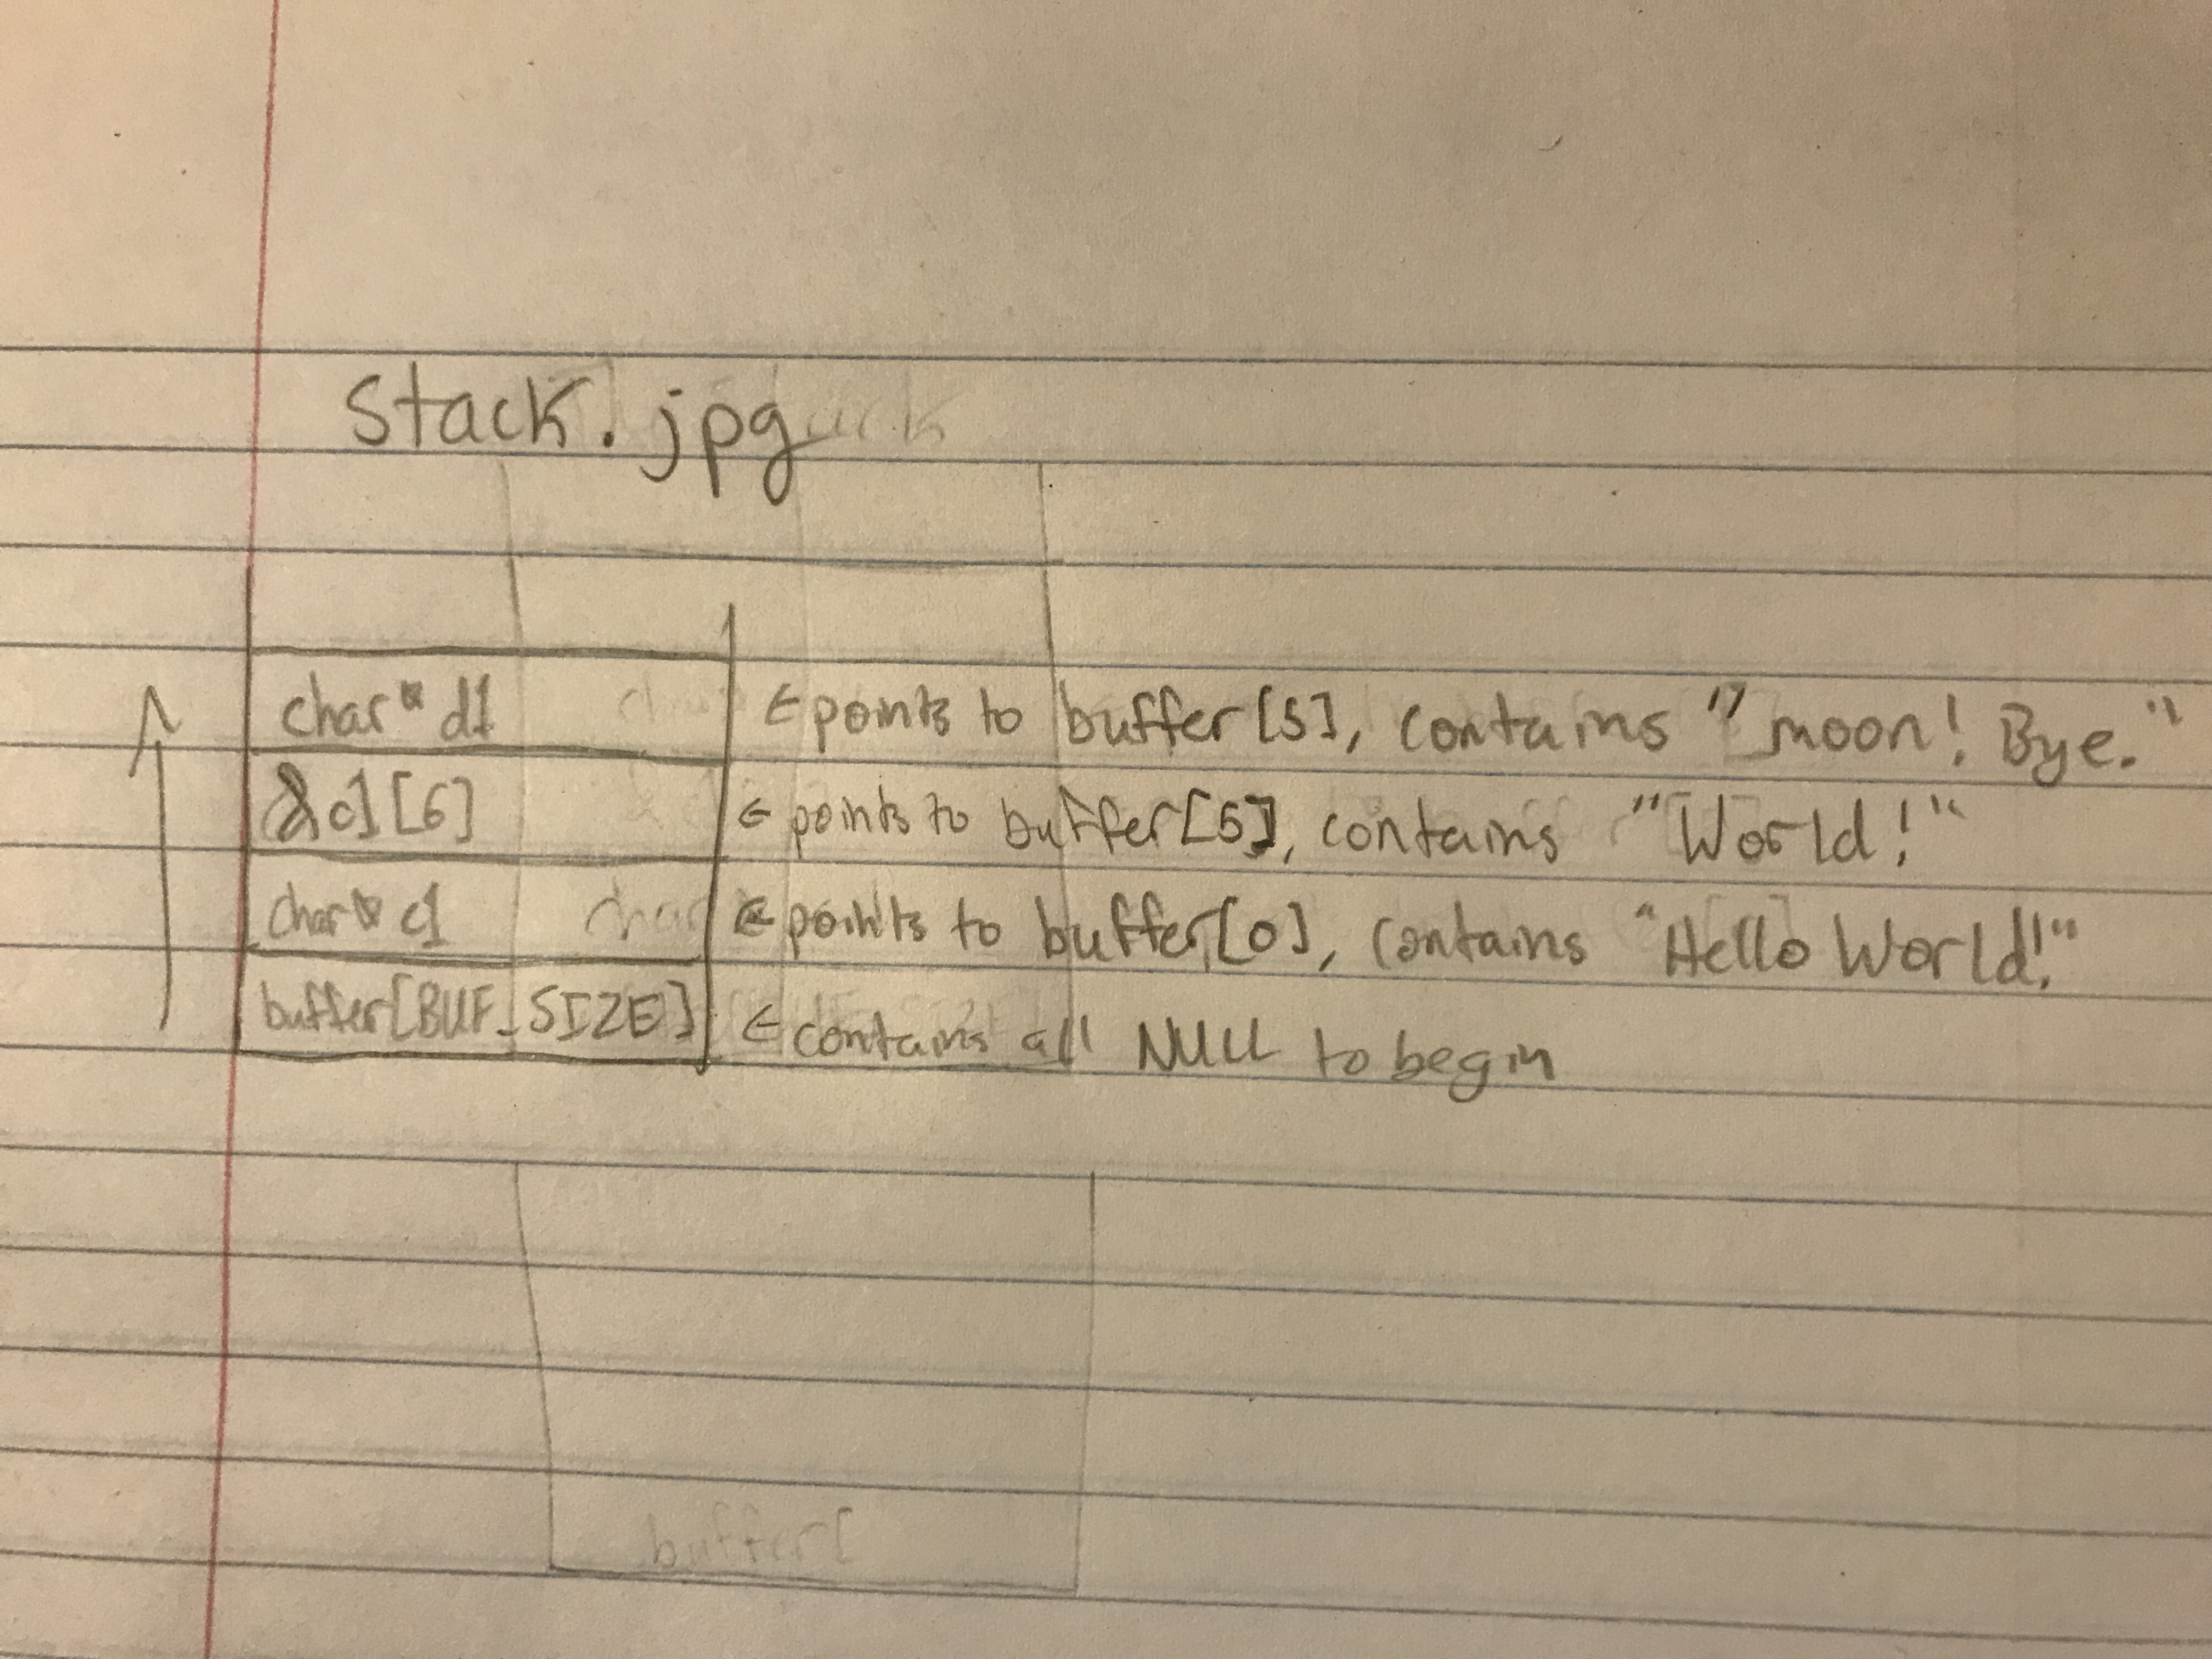 stack.jpg
char* d1 ← points to buffer[5], contains "moon! Bye."
&c1[6] ← points to buffer[6], contains "World!"
char* c1 ← points to buffer[0], contains "Hello World!"
buffer[BUF_SIZE] ← contains all NULL to begin
buffer[